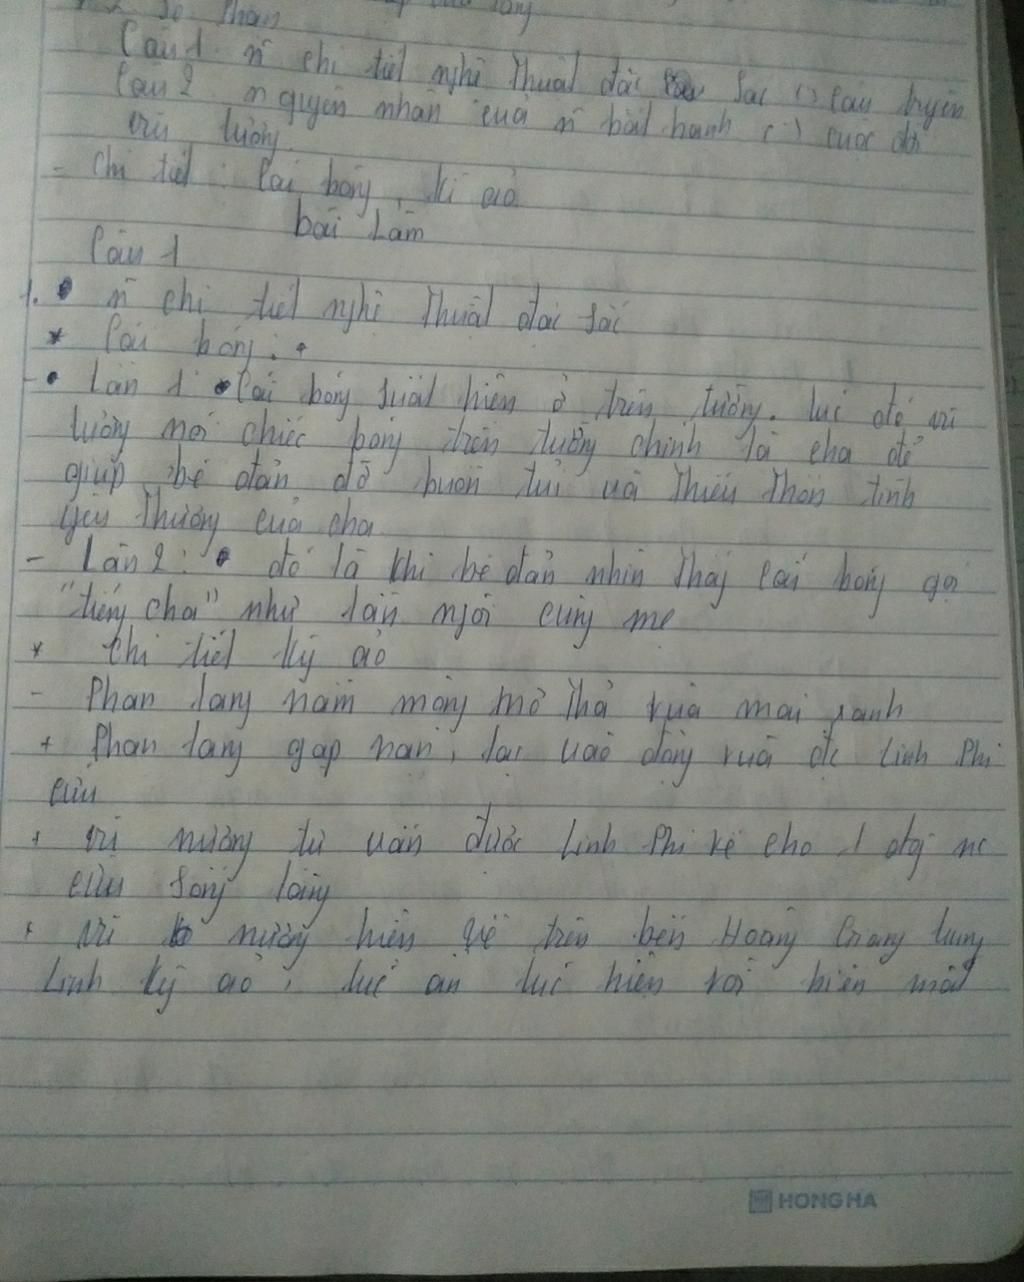 số phận
Câu 1. n~ chi tiết nghệ thuật đặc sắc () câu truyện
Câu 2 nguyên nhân của n~ bất hạnh () cuộc đời
vũ nương.
- Chi tiết : Cái bóng, kì ảo
bài Làm
Câu 1
1. n~ chi tiết nghệ thuật đặc sắc
* Cái bóng:
- Lần 1: Cái bóng suất hiện ở trên tường. lúc đó vũ
lương nói chiếc bóng trên tường chính là cha để
giúp bé đản đỡ buồn tủi và thiếu thốn tình
yêu thương của cha
- Lần 2: đó là khi bé đản nhìn thấy cái bóng gọi
"tiếng cha" như lần ngồi cùng mẹ
* Chi tiết kỳ ảo
- Phan lang nằm mộng mở thả rùa mai xanh
+ Phan lang gặp nạn, lạc vào động rùa đc Linh Phi
cứu
+ vũ nương tự vẫn được Linh Phi rẽ cho 1 đg nc
cứu sống
+ vũ nương hiện về trên bến Hoàng Giang lung
linh kỳ ảo, lúc ẩn lúc hiện rồi biến mất
HONG HA